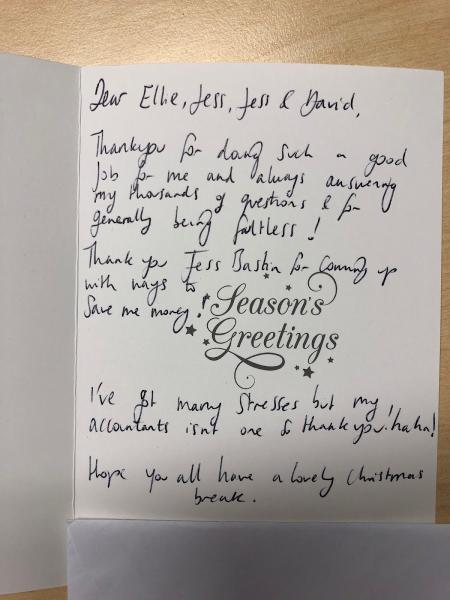 Dear Ellie, Jess, Jess & David,
Thankyou for doing such a good
job for me and always answering
my thousands of questions & for
generally being faltless!
Thank you Jess Bastin for coming up
with ways to
save me money!
Season's
Greetings
I've got many stresses but my
accountants isnt one so thankyou! haha!
Hope you all have a lovely Christmas
break.